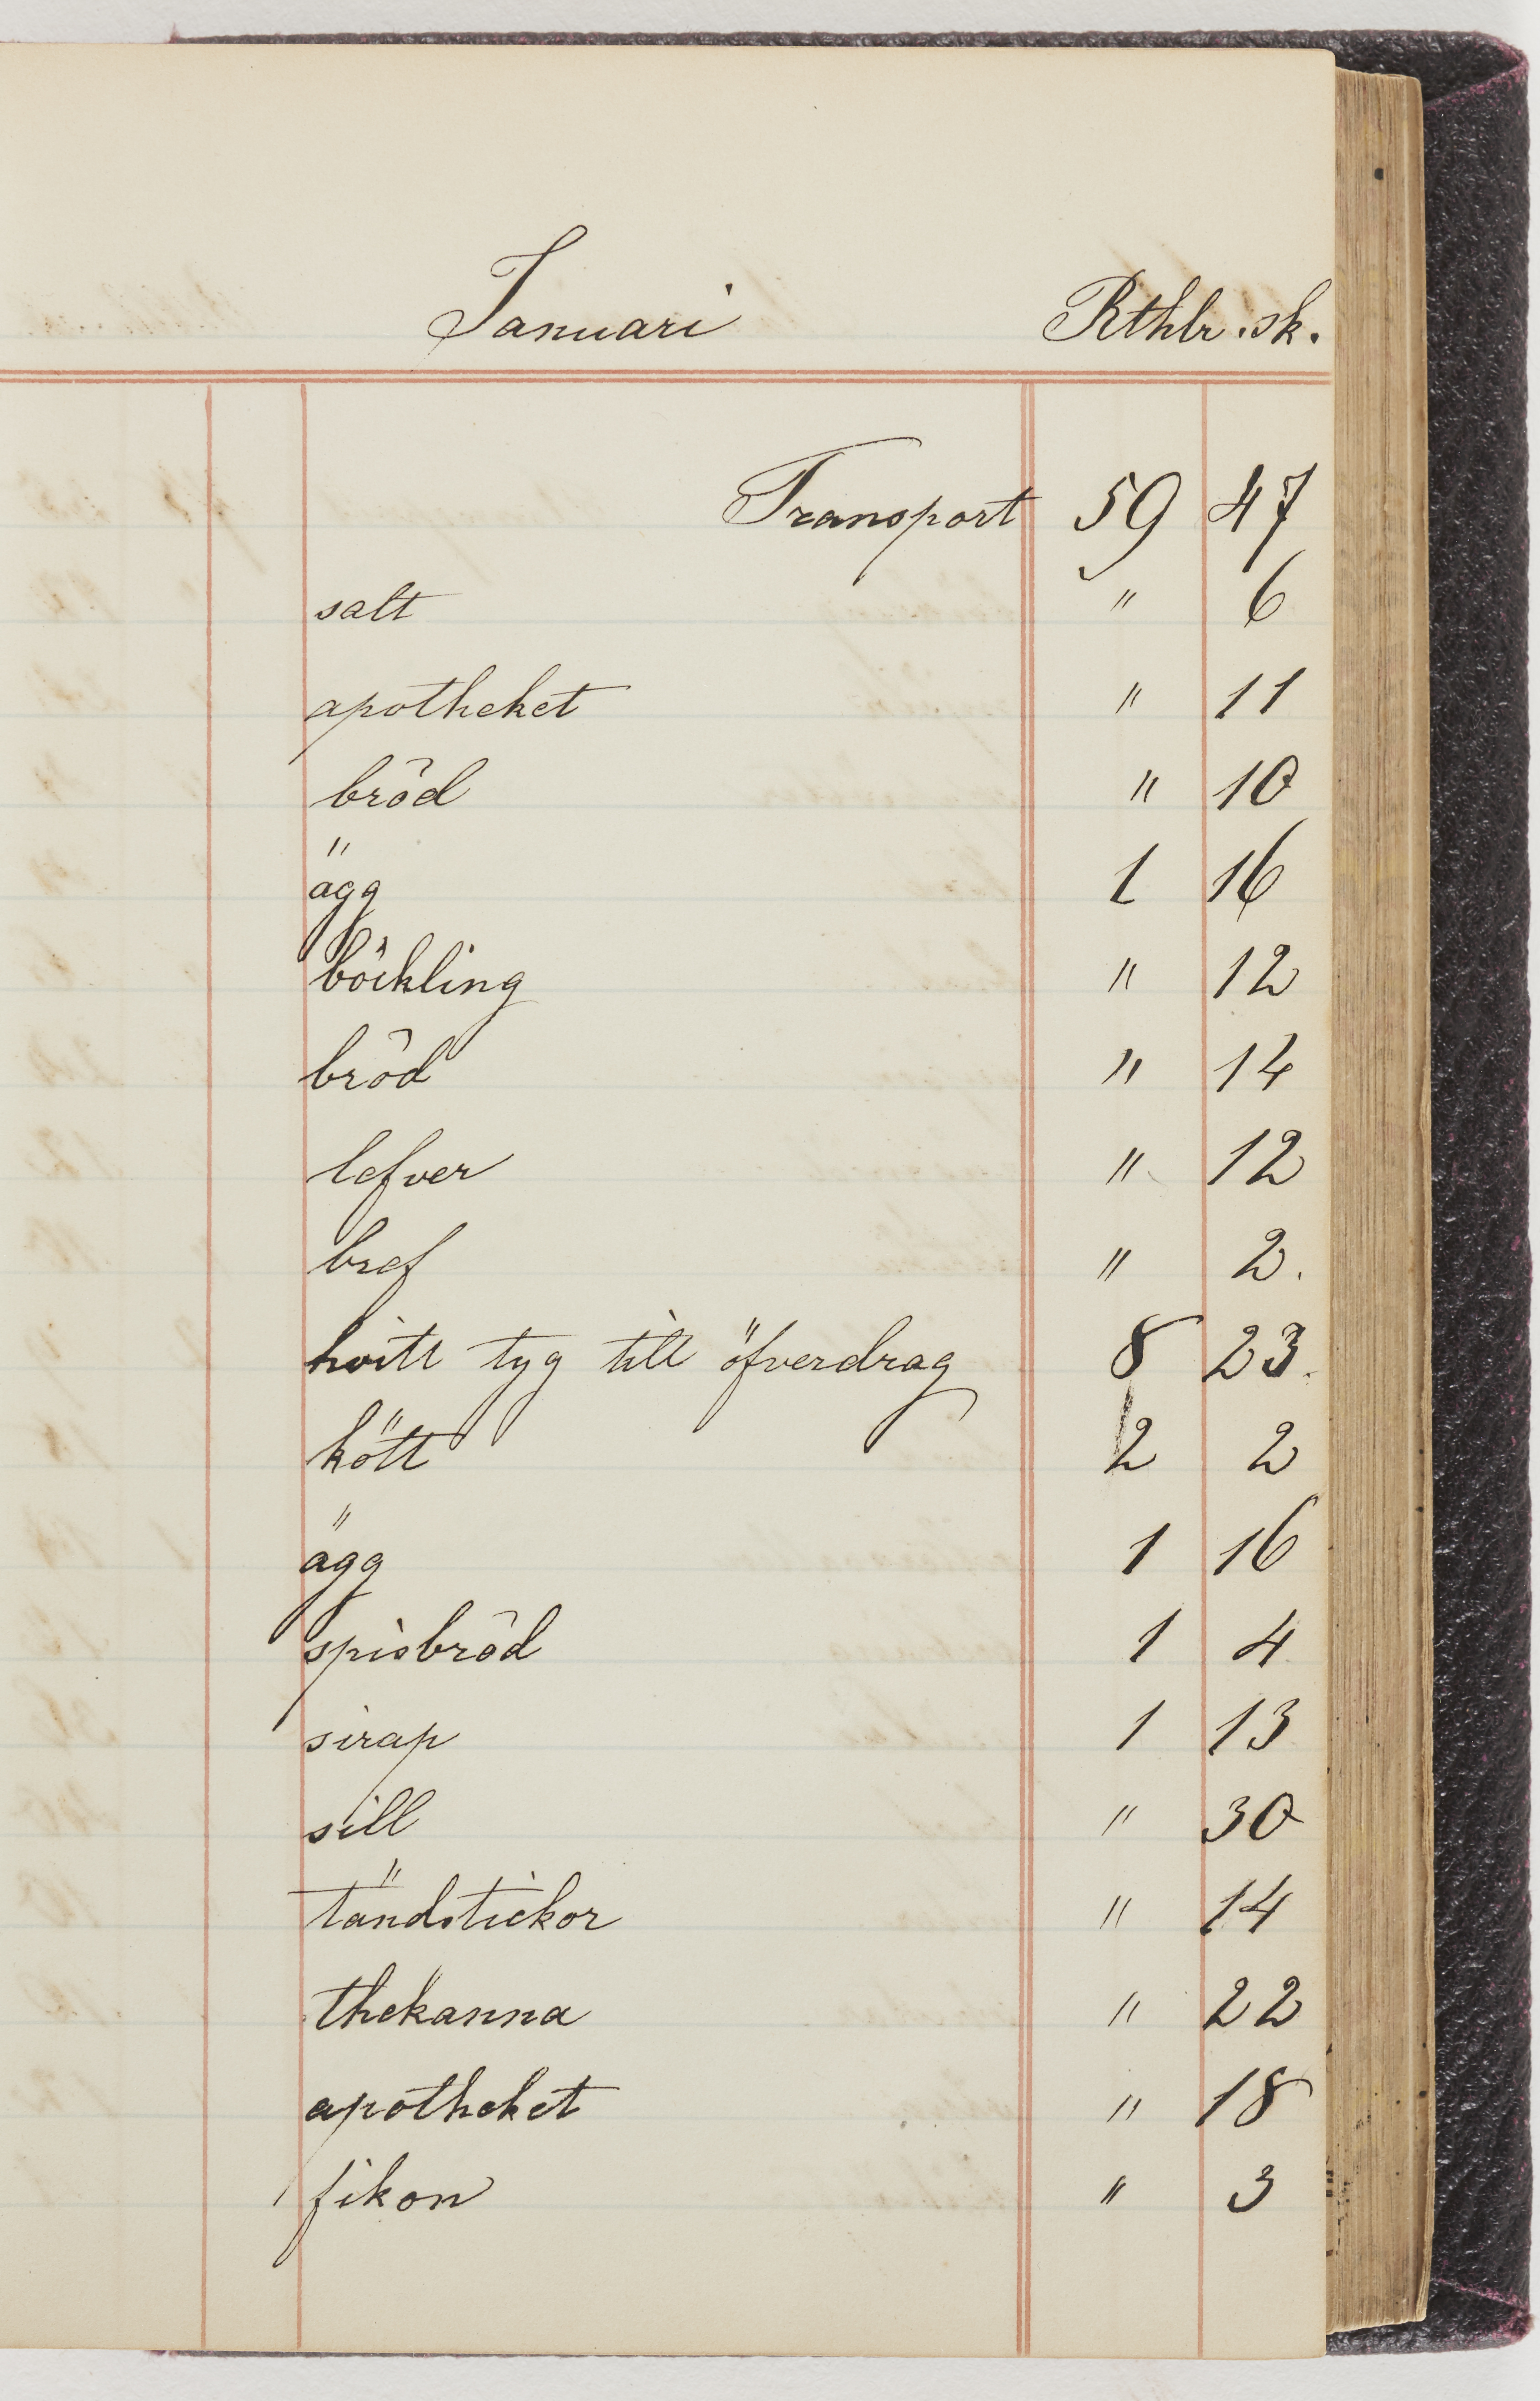 Januari Rthlr. sk.
Transport 59 47
salt " 6
apotheket " 11
bröd " 10
ägg 1 16
böckling " 12
bröd " 14
lefver " 12
bref " 2.
hvitt tyg till öfverdrag 8 23.
kött 2 2
ägg 1 16
spisbröd 1 4
sirap 1 13
sill " 30
tändstickor " 14
thekanna " 22
apotheket " 18
fikon " 3